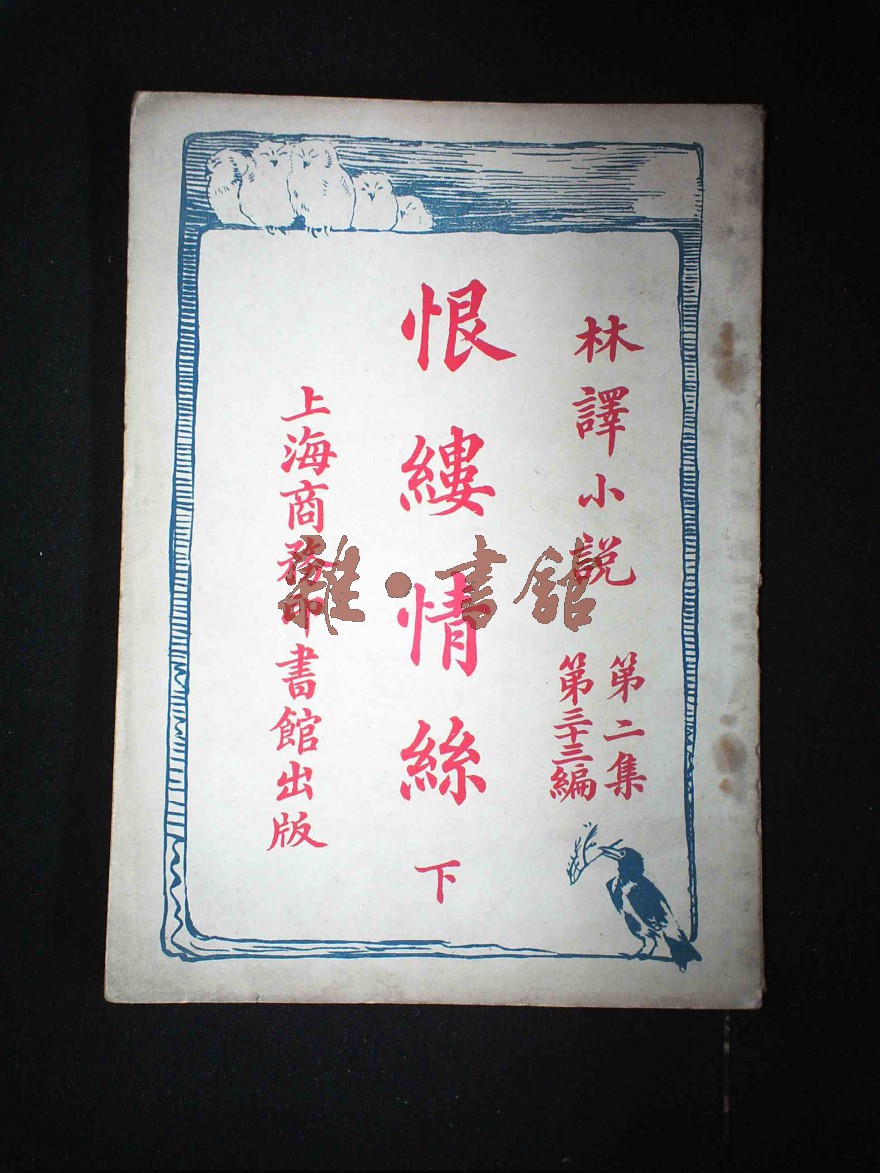 林譯小說
第二集
第三十三編
恨縷情絲 下
上海商務印書館出版
雜·書館